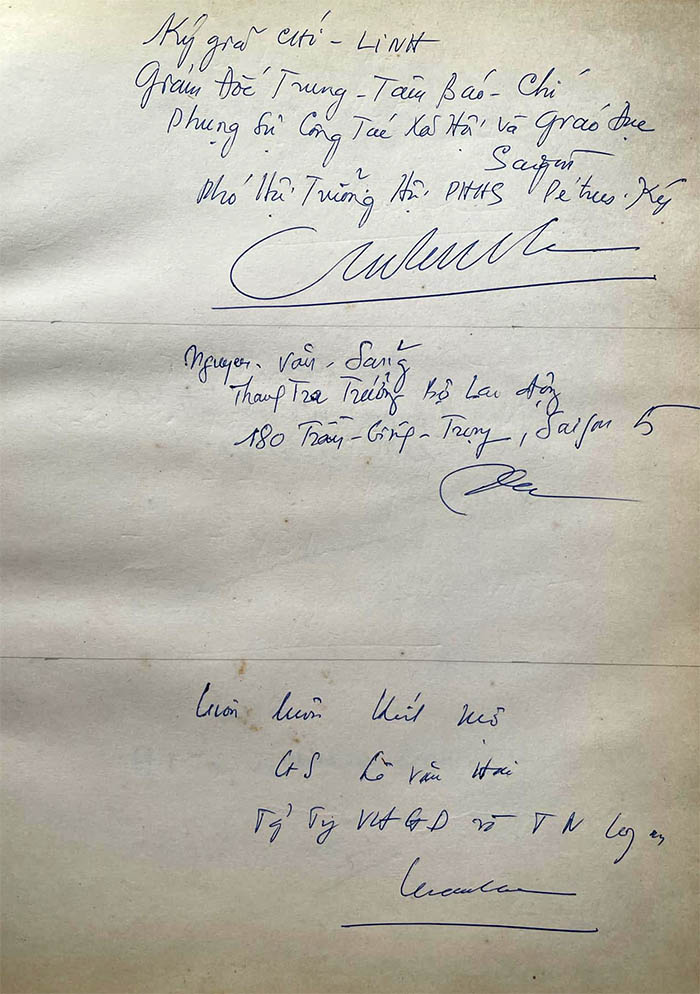 Ký giả CHÍ - LINH
Giám Đốc Trung - Tâm Báo - Chí
Phụng Sự Công Tác Xã Hội và Giáo Dục
Saigon
Phó Hội Trưởng Hội PHHS Pétrus-Ký
Nguyen - Văn - Sang
Thanh Tra Trưởng Bộ Lao động
180 Trần - Trọng, Saigon 5
Luôn luôn kính mộ
GS Lê Văn Hai
Ty VHGD và TN